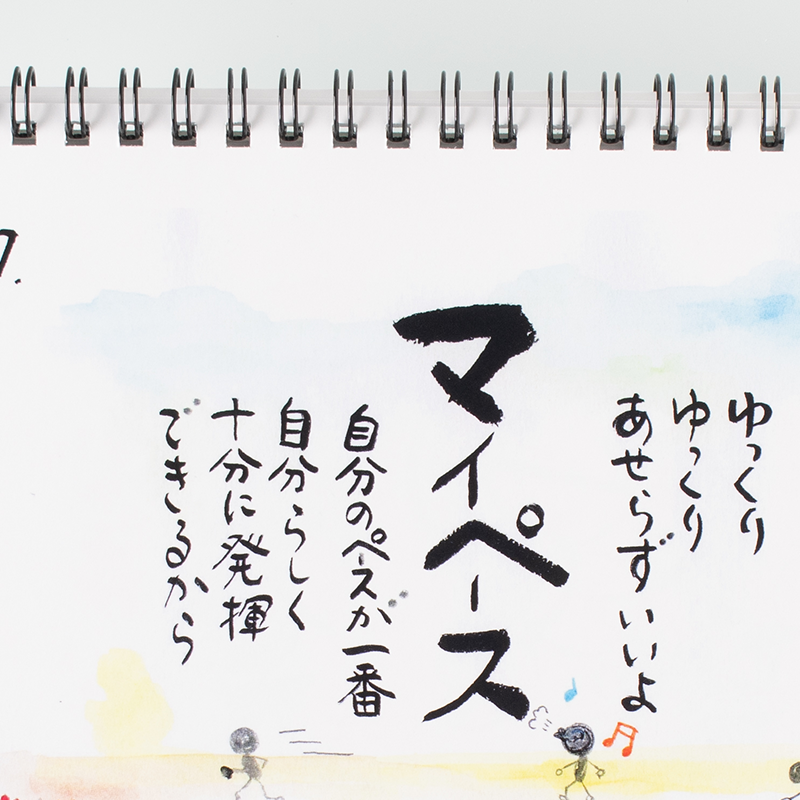 ゆっくり
ゆっくり
あせらずいいよ
マイペース
自分のペースが一番
自分らしく
十分に発揮
できるから
7.